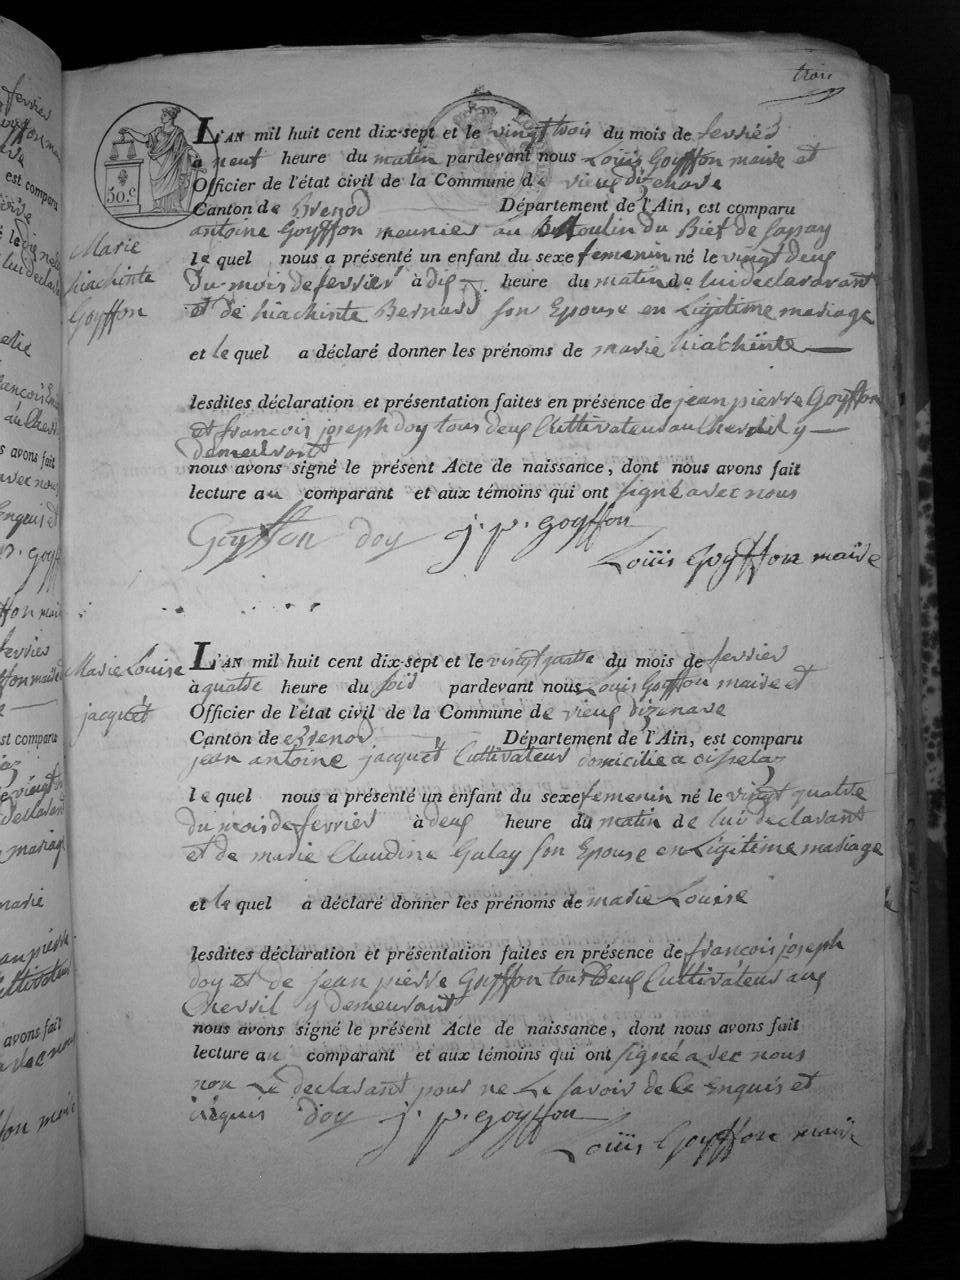 trois
50.c
L'AN mil huit cent dix-sept et le vingt trois du mois de fevrier
à neuf heure du matin pardevant nous Louis Goyffon maire et
Officier de l'état civil de la Commune de vieux dizenave
Canton de Brenod Département de l'Ain, est comparu
antoine Goyffon meunier au Moulin du Bief de
le quel nous a présenté un enfant du sexe femenin né le vingt deux
Du mois de fevrier à dix heure du matin de lui declarant
et de hiachinte Bernard son Epouse en Légitime mariage
et le quel a déclaré donner les prénoms de marie hiachinte
lesdites déclaration et présentation faites en présence de jean pierre Goyffon
et françois joseph doy tous deux Cultivateur au Chevril y
demeurant
nous avons signé le présent Acte de naissance, dont nous avons fait
lecture au comparant et aux témoins qui ont signé avec nous
Goyffon doy j. p. goyffon
Louis Goyffon maire
Marie
hiachinte
Goyffon
L'AN mil huit cent dix-sept et le vingt quatre du mois de fevrier
à quatre heure du soir pardevant nous Louis Goyffon maire et
Officier de l'état civil de la Commune de vieux dizenave
Canton de Brenod Département de l'Ain, est comparu
jean antoine jacquet Cultivateur domicilié a oisselaz
le quel nous a présenté un enfant du sexe femenin né le vingt quatre
du mois de fevrier à deux heure du matin de lui declarant
et de marie Claudine Galay son Epouse en Légitime mariage
et le quel a déclaré donner les prénoms de marie Louise
lesdites déclaration et présentation faites en présence de françois joseph
doy et de jean pierre Goyffon tous Deux Cultivateur aux
Chevril y demeurant
nous avons signé le présent Acte de naissance, dont nous avons fait
lecture au comparant et aux témoins qui ont signé avec nous
non Le declarant pour ne Le savoir de ce Enquis et
réquis doy j. p. goyffon
Louis Goyffon maire
Marie Louise
jacquet